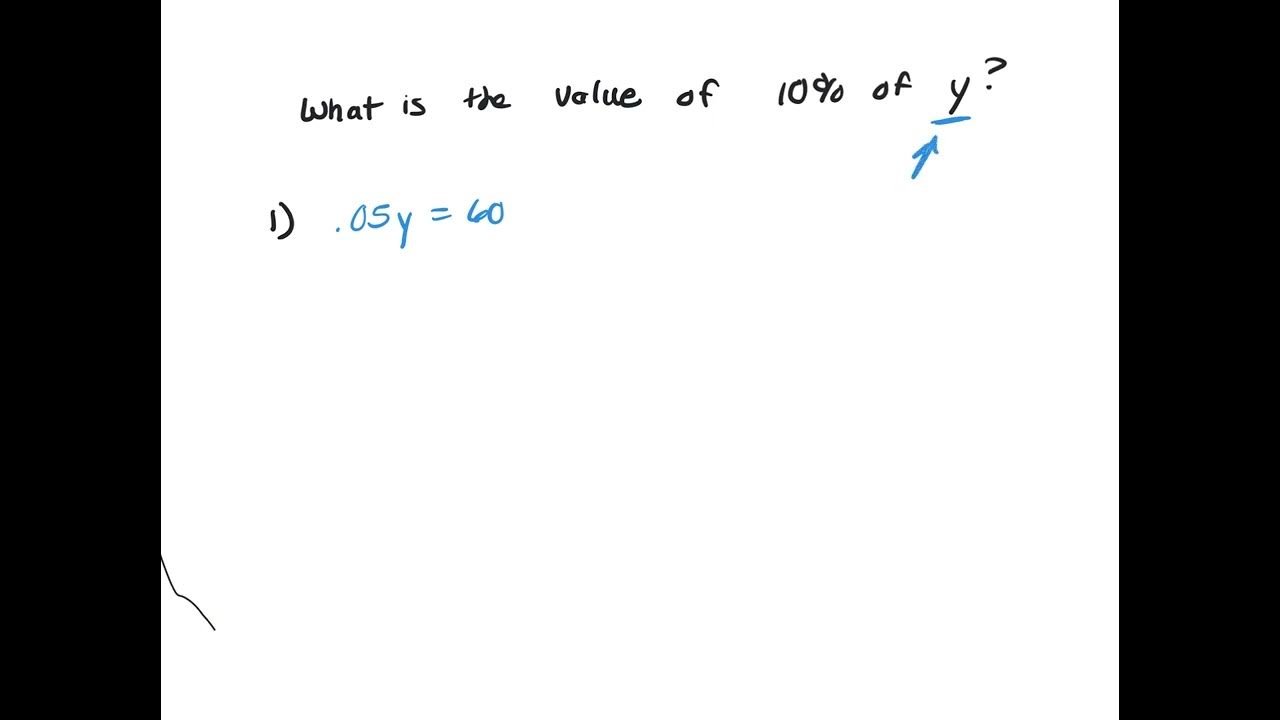 What is the value of 10% of y?
1) .05y = 60